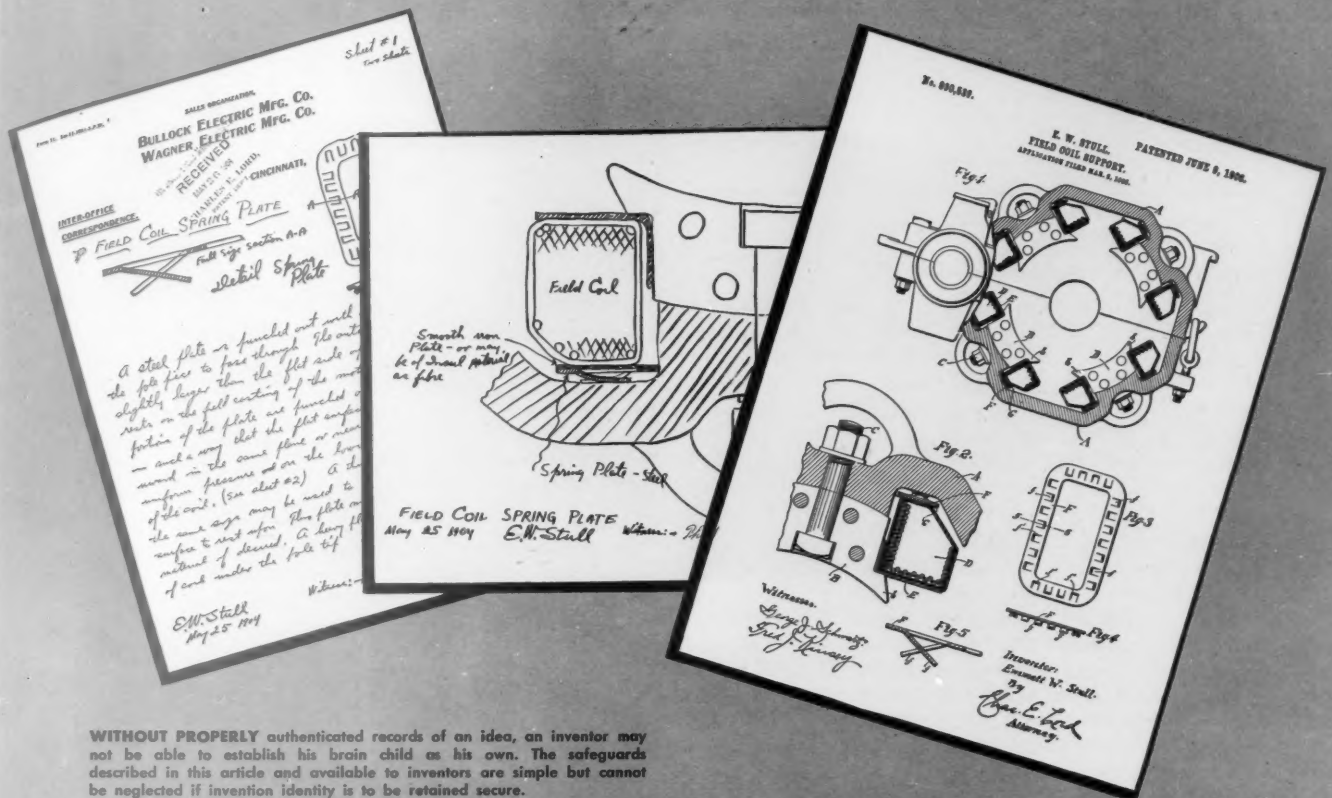 Sheet #1
Two Sheets
SALES ORGANIZATION,
BULLOCK ELECTRIC MFG. CO.
WAGNER ELECTRIC MFG. CO.
RECEIVED
CHARLES E. LORD,
CINCINNATI,
INTER-OFFICE
CORRESPONDENCE.
FIELD COIL SPRING PLATE
Full size section A-A
Detail Spring
Plate
A
A steel plate is punched out with
the pole piece to pass through. The
slightly larger than the flat side of
rests on the field casting of the
portion of the plate are punched
in such a way that the flat
in the same plane or
uniform pressure on the
of the coil. (See sheet #2) A
the same size may be used to
surface to rest upon. This plate
material if desired. A heavy
of cord under the pole tip
Witness:-
E.W. Stull
May 25 1904
Field Coil
Smooth iron
Plate - or may
be of material
as fibre
Spring Plate - Steel
FIELD COIL SPRING PLATE
May 25 1904 E.W. Stull Witness:-
E. W. STULL.
FIELD COIL SUPPORT.
PATENTED JUNE 5, 1906.
Fig. 1.
A
A
Fig. 2.
C
A
F
G
D
B
E
Fig. 3
F
G
Fig. 4
F
Fig. 5
F
G
G
Witnesses.
George J. Schwartz.
Fred J. Kinsey
Inventor:
Emmett W. Stull.
By
Chas. E. Lord
Attorney.
WITHOUT PROPERLY authenticated records of an idea, an inventor may
not be able to establish his brain child as his own. The safeguards
described in this article and available to inventors are simple but cannot
be neglected if invention identity is to be retained secure.